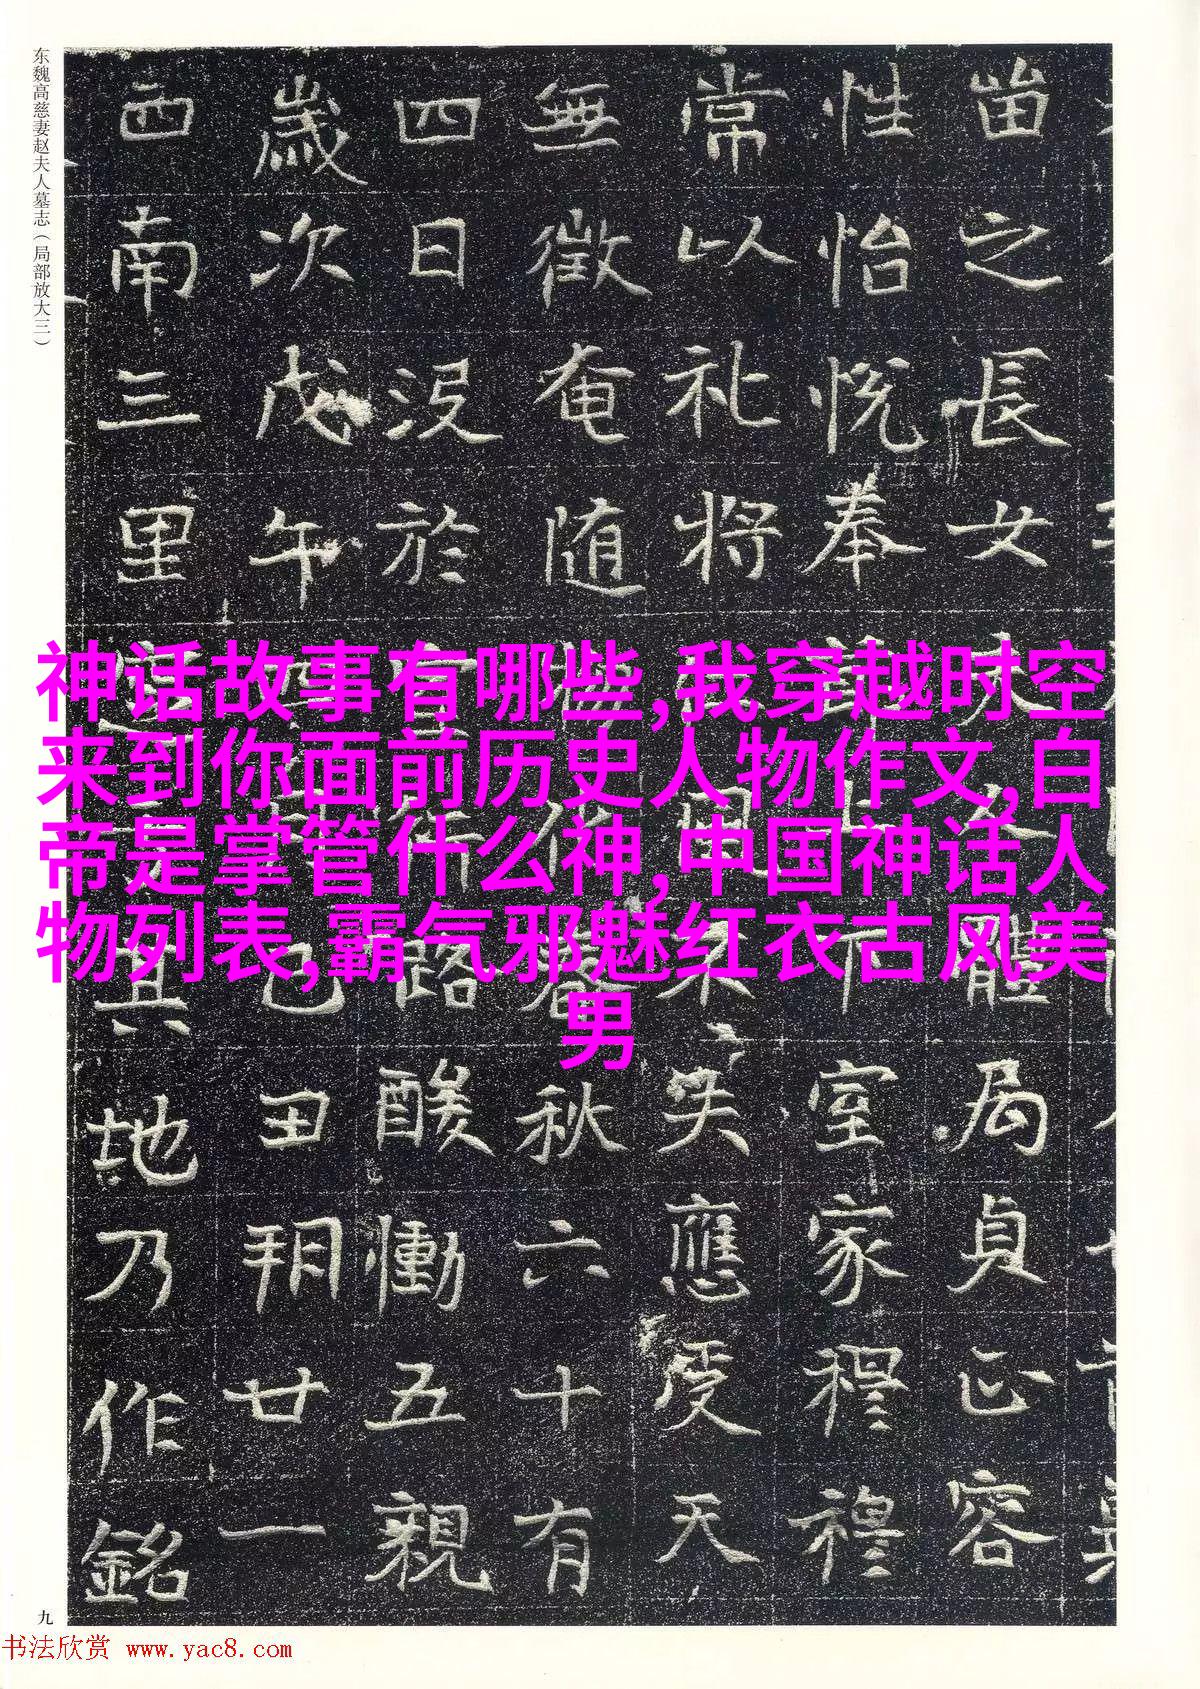 东魏高慈妻赵夫人墓志（局部放大三）
苗之長女夫人體局貞正容
性怡悦奉上下室家穆穆
常以礼将風未失應受天
無徵奄随化春秋六十有
四日没於官行路酸慟五親
歲次戊午己丑朔廿一
西南三里其地乃作銘
神话故事有哪些,我穿越时空
来到你面前历史人物作文,白
帝是掌管什么神,中国神话人
物列表,霸气邪魅红衣古风美
男
九
书法欣赏 www.yac8.com